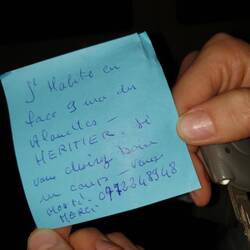 J'habite en
face 9 rue des
Alouettes -
HERITIER. Si
vous désirez boire
un coup - vous
MERCI 0778248948